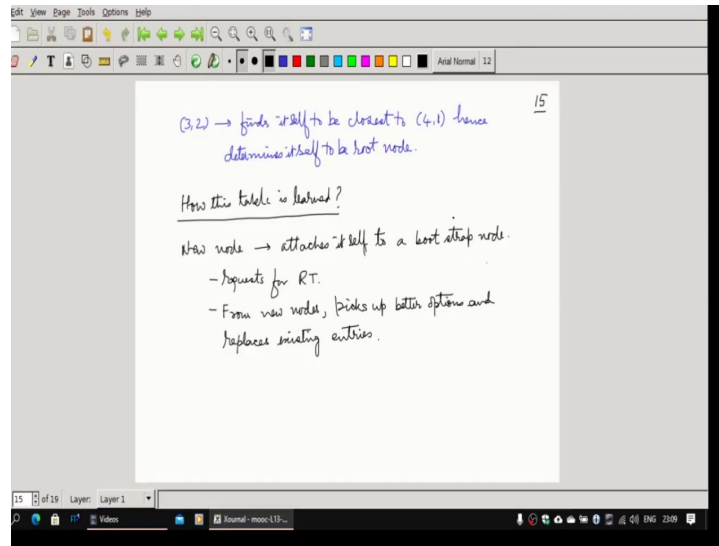 Edit View Page Tools Options Help
Arial Normal 12
15
(3,2) → finds itself to be closest to (4,1) hence
determines itself to be root node.
How this table is learned?
New node → attaches itself to a boot strap node.
- requests for RT.
- From new nodes, picks up better options and
replaces existing entries.
15 of 19 Layer: Layer 1
Videos Xournal - mooc-L13-... ENG 23:09